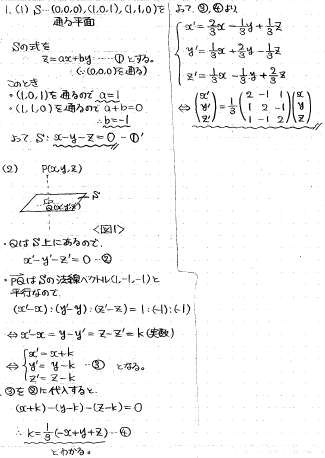 1. (1) S…(0,0,0), (1,0,1), (1,1,0)を
通る平面
Sの式を
z=ax+by……①とする。
(∵(0,0,0)を通る)
このとき
・(1,0,1)を通るので a=1
・(1,1,0)を通るので a+b=0
∴b=-1
よって S: x-y-z=0…①′
(2) P(x,y,z)
S
Q(x′,y′,z′)
<図1>
・QはS上にあるので、
x′-y′-z′=0…②
・PQはSの法線ベクトル(1,-1,-1)と
平行なので
(x′-x):(y′-y):(z′-z)=1:(-1):(-1)
⇔ x′-x=y-y′=z-z′=k(実数)
⇔ { x′=x+k
y′=y-k …③ となる。
z′=z-k
③を②に代入すると、
(x+k)-(y-k)-(z-k)=0
∴ k=1/3(-x+y+z)…④
とわかる。
よって、③,④より
{ x′=2/3x+1/3y+1/3z
y′=1/3x+2/3y-1/3z
z′=1/3x-1/3y+2/3z
⇔ (x′ y′ z′)=1/3(2 1 1
1 2 -1
1 -1 2)(x y z)